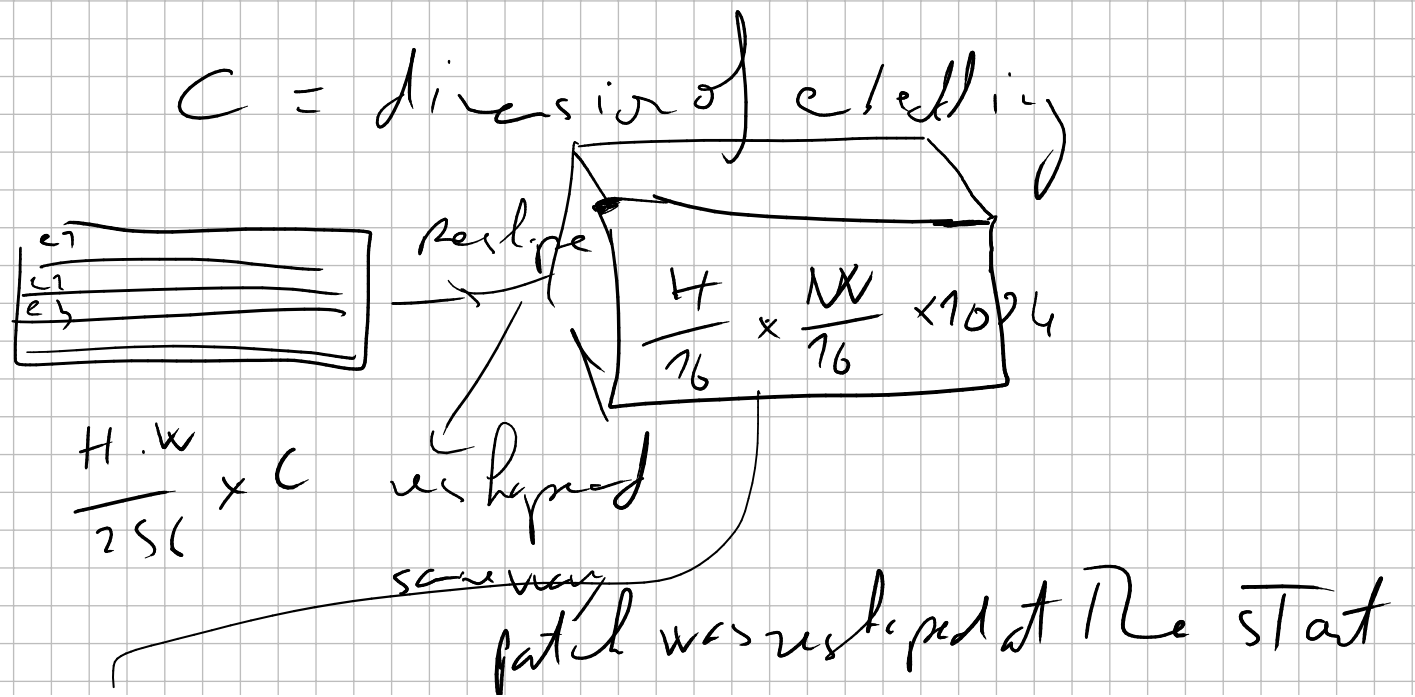 C = dimension of embedding
e1
e2
e3
Reshape
H/16 × W/16 ×1024
H.W/256 × C
reshaped
same way
patch was reshaped at The start